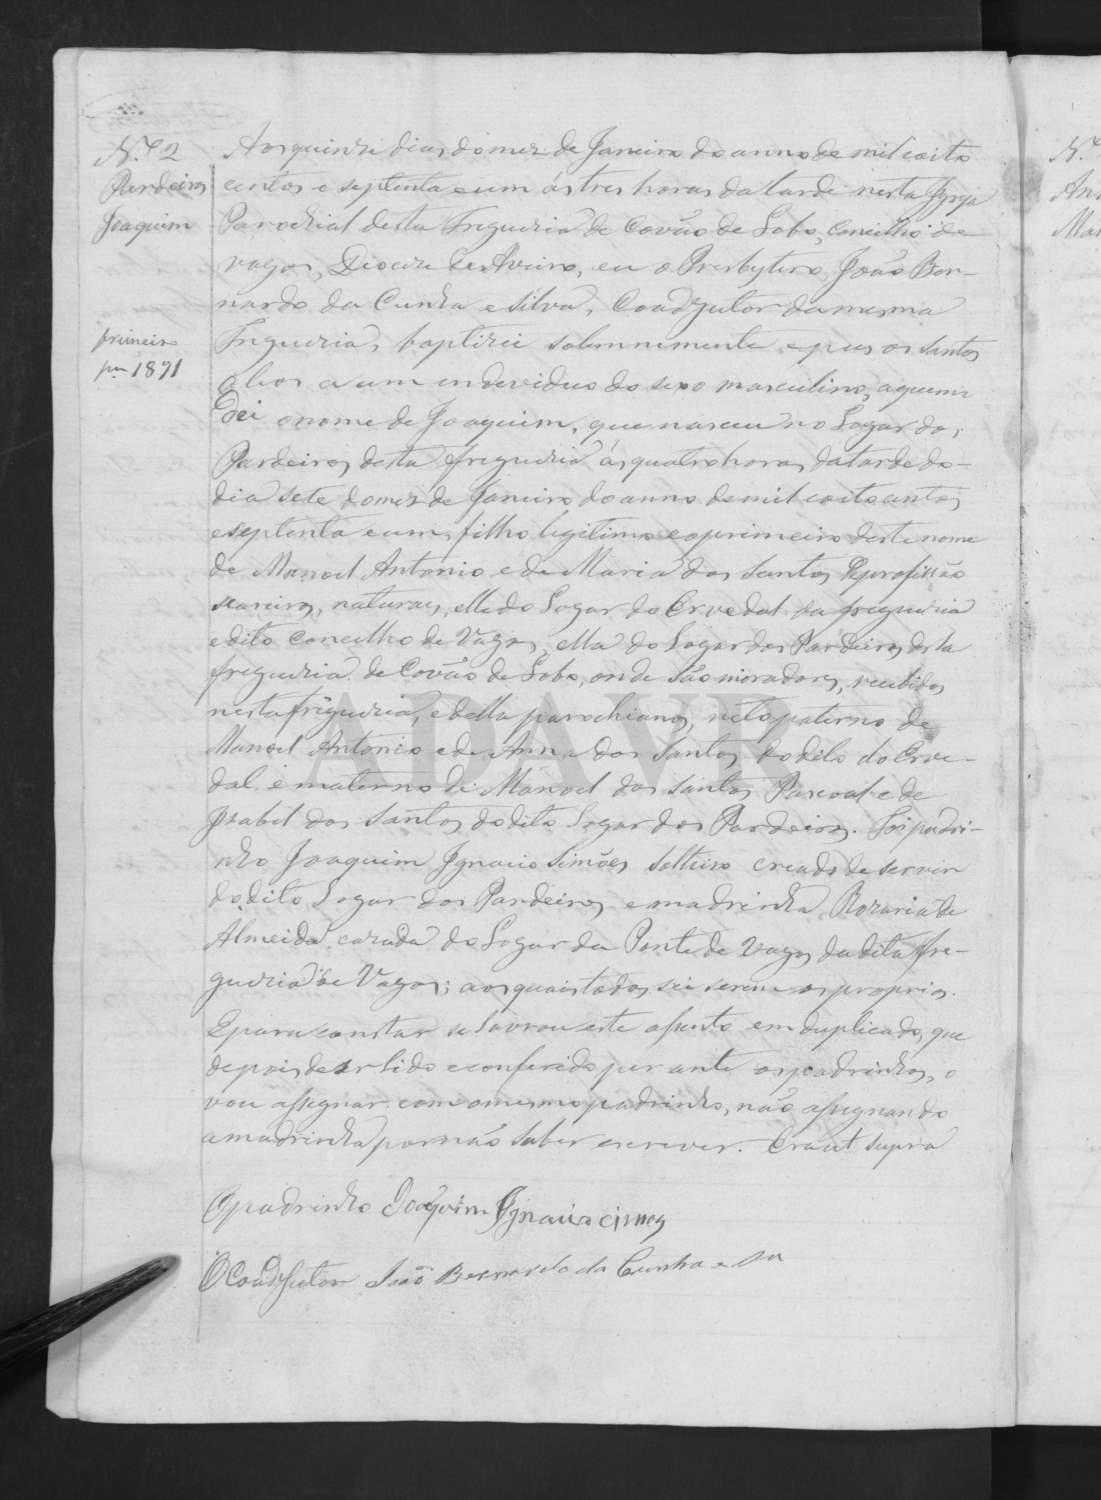 N.º 2
Pardeiros
Joaquim
primeiro
1891
Aos quinze dias do mez de Janeiro do anno de mil e oito
centos e septenta e um ás tres horas da tarde nesta Igreja
Parochial desta Freguezia de Covão de Lobo, Concelho de
Vagos, Diocese de Aveiro, eu o Presbytero João Ber-
nardo da Cunha e Silva, Coadjutor da mesma
Freguezia, baptizei solemnemente e pus os Santos
olios a um individuo do sexo masculino, a quem
Dei o nome de Joaquim, que nasceu no Logar dos
Pardeiros desta freguezia ás quatro horas da tarde do
dia sete do mez de Janeiro do anno de mil e oito centos
e septenta e um, filho legitimo e o primeiro deste nome
de Manoel Antonio e de Maria dos Santos de profissão
seareiros, naturaes, elle do Logar do Ervedal da freguezia
e dito Concelho de Vagos, ella do Logar dos Pardeiros desta
freguezia de Covão de Lobo, onde são moradores, recebidos
nesta freguezia, e della parochianos, neto paterno de
Manoel Antonio e de Anna dos Santos do dito do Erve-
dal e materno de Manoel dos Santos Pascoal e de
Izabel dos Santos do dito Logar dos Pardeiros. Foi padri-
nho Joaquim Ignacio Simões solteiro creado de servir
do dito Logar dos Pardeiros e madrinha Rozaria de
Almeida cazada do Logar da Ponte de Vagos da dita fre-
guezia de Vagos; aos quais todos sei serem os proprios.
E para constar se lavrou este assento em duplicado, que
depois de ser lido e conferido per ante os padrinhos, o
vou assignar com o mesmo padrinho, não assignando
a madrinha por não saber escrever. Era ut supra
O padrinho Joaquim Ignacio
O Coadjutor João Bernardo da Cunha e Sa
N.º
ADAVR